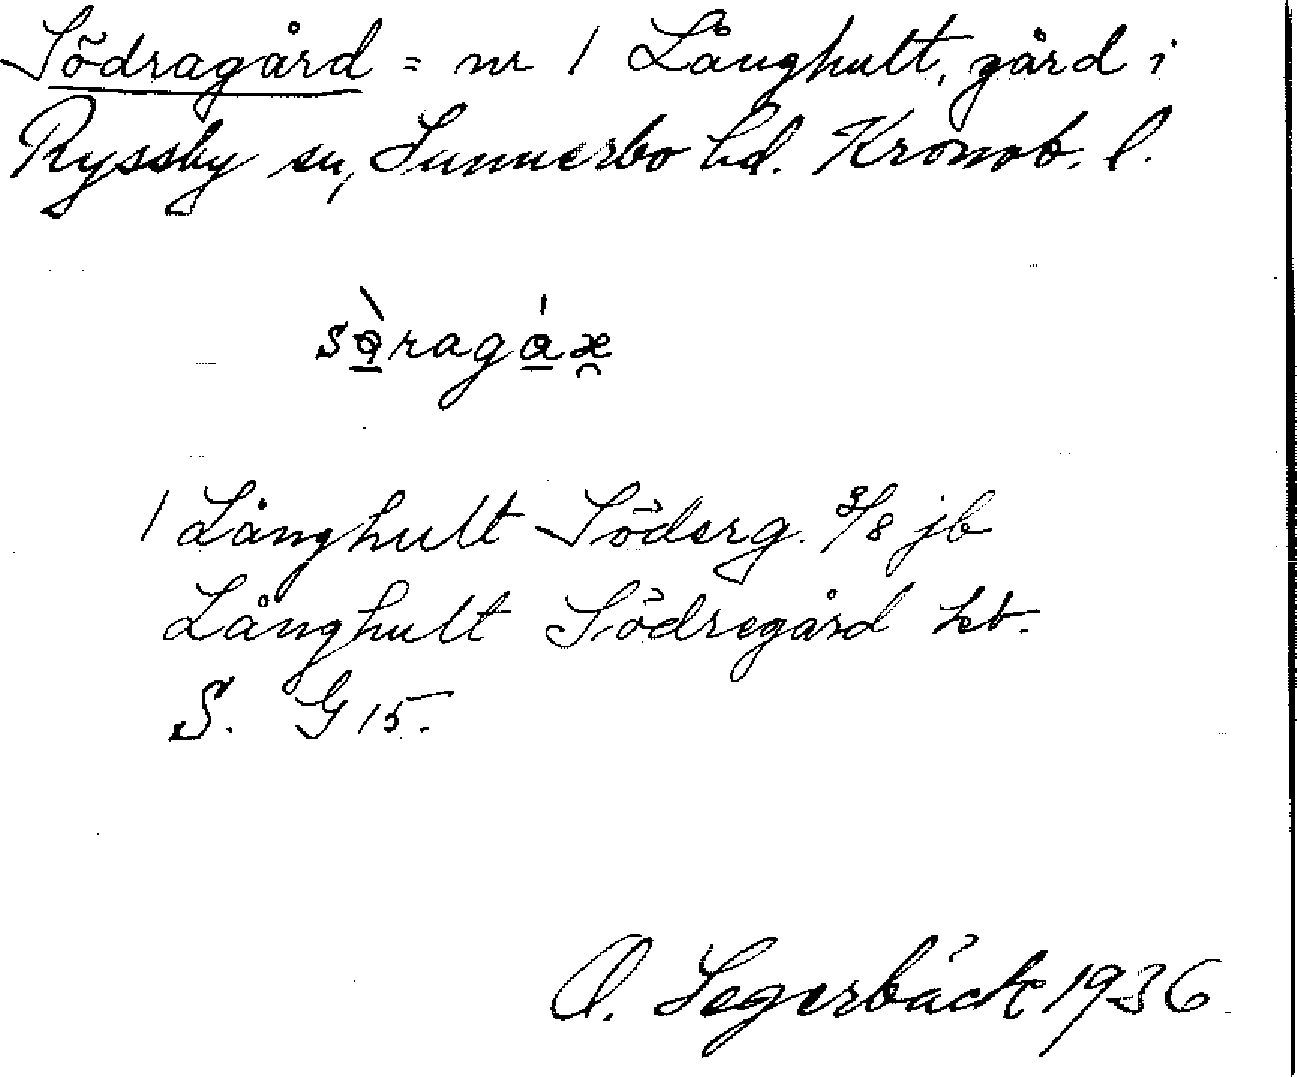 Södragård = nr 1 Långhult, gård i
Ryssby sn, Sunnerbo hd. Kronob. l.
1 Långhult Söderg. 3/8 jb
Långhult Södregård
S. G 15.
O. Segerbäck 1936